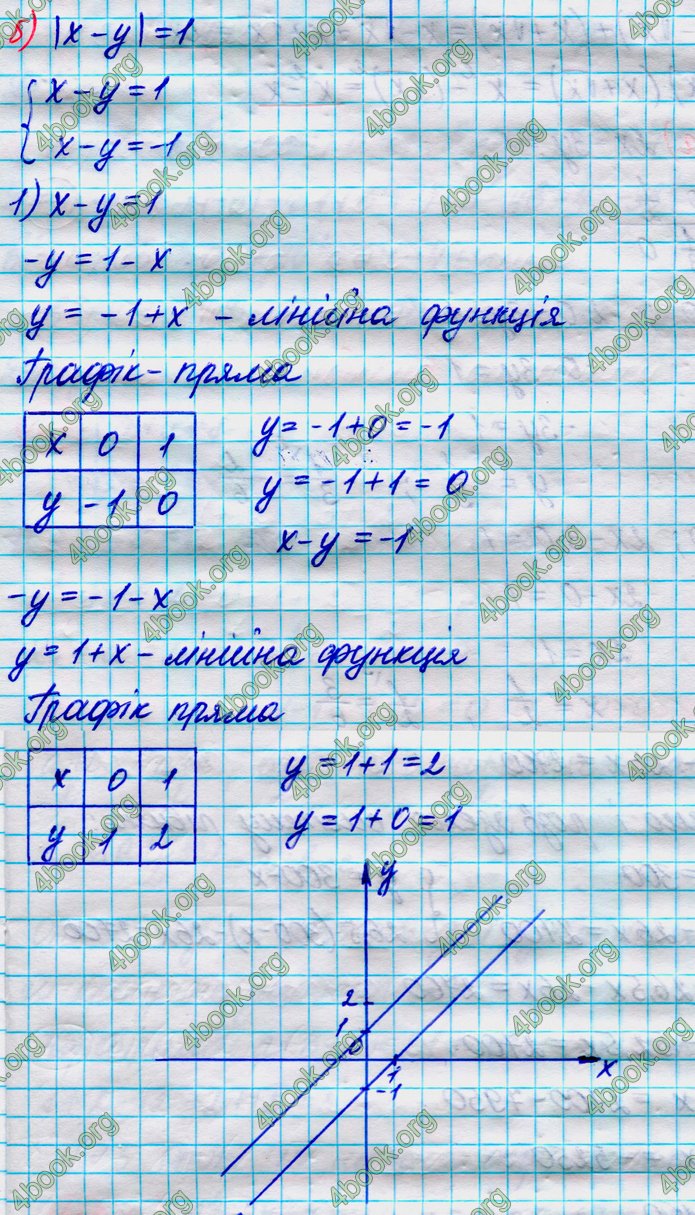 б) |x-y|=1
{x-y=1
x-y=-1
1) x-y=1
-y=1-x
y = -1+x - лінійна функція
Графік - пряма
x 0 1
y -1 0
y= -1+0=-1
y = -1+1 = 0
x-y=-1
-y=-1-x
y=1+x - лінійна функція
Графік пряма
x 0 1
y 1 2
y=1+1=2
y=1+0=1
y
2
1
0
1
x
-1
4book.org